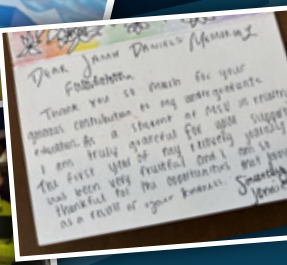 Dear Jonah Daniels Memorial
Foundation
Thank you so much for your
generous contribution to my undergraduate
education. As a student at MSU in
I am truly grateful for your support
The first year of my
has been very fruitful and I am so
thankful for the opportunities that
as a result of your kindness.
Sincerely